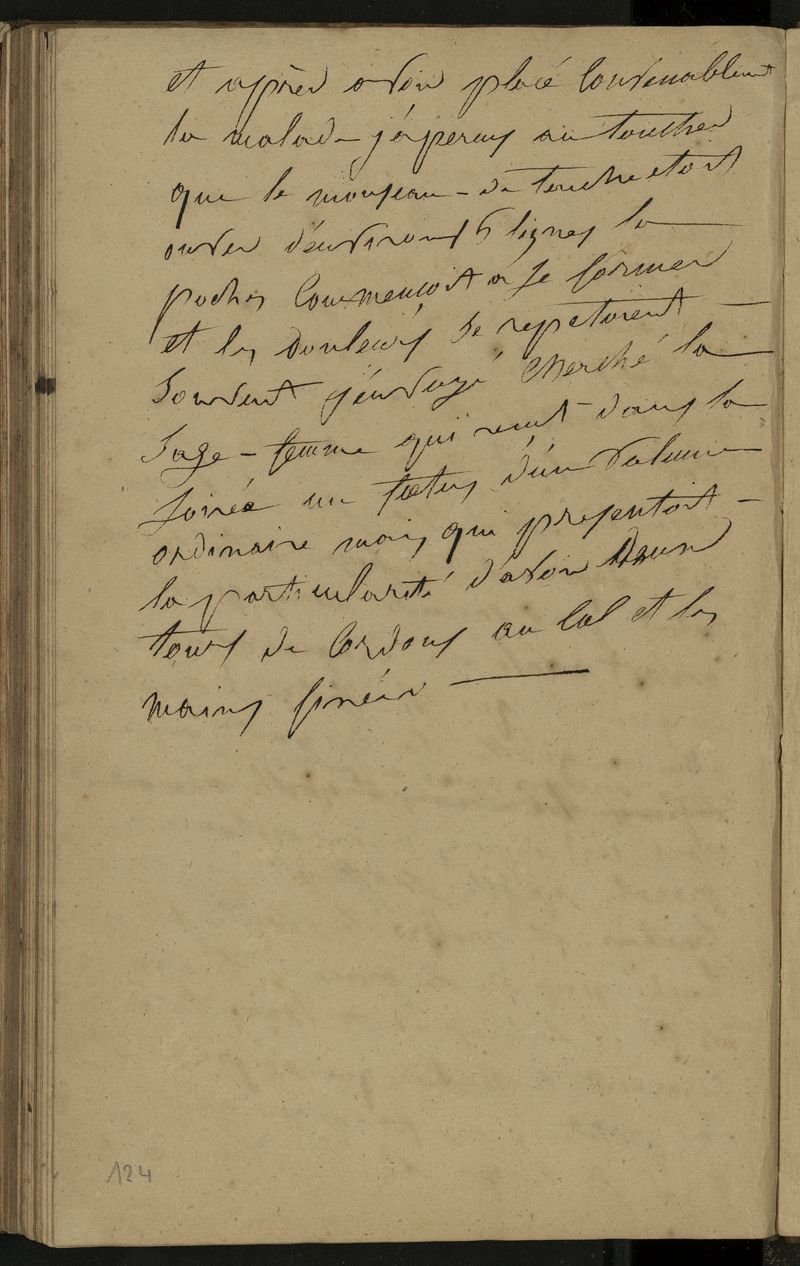 et après avoir placé Convenablement
la malade j'aperçus au toucher
que le museau de tenche etoit
ouvert d'environs 6 lignes la
poches Commençoit a se former
et les Douleurs se repetoient
Souvent j'envoyé cherché la
Sage-femme qui recut dans la
Soirée un fœtus d'un volume
ordinaire mais qui presentoit
la particularité d'avoir Deux
tours de Cordons au Col et les
mains
124